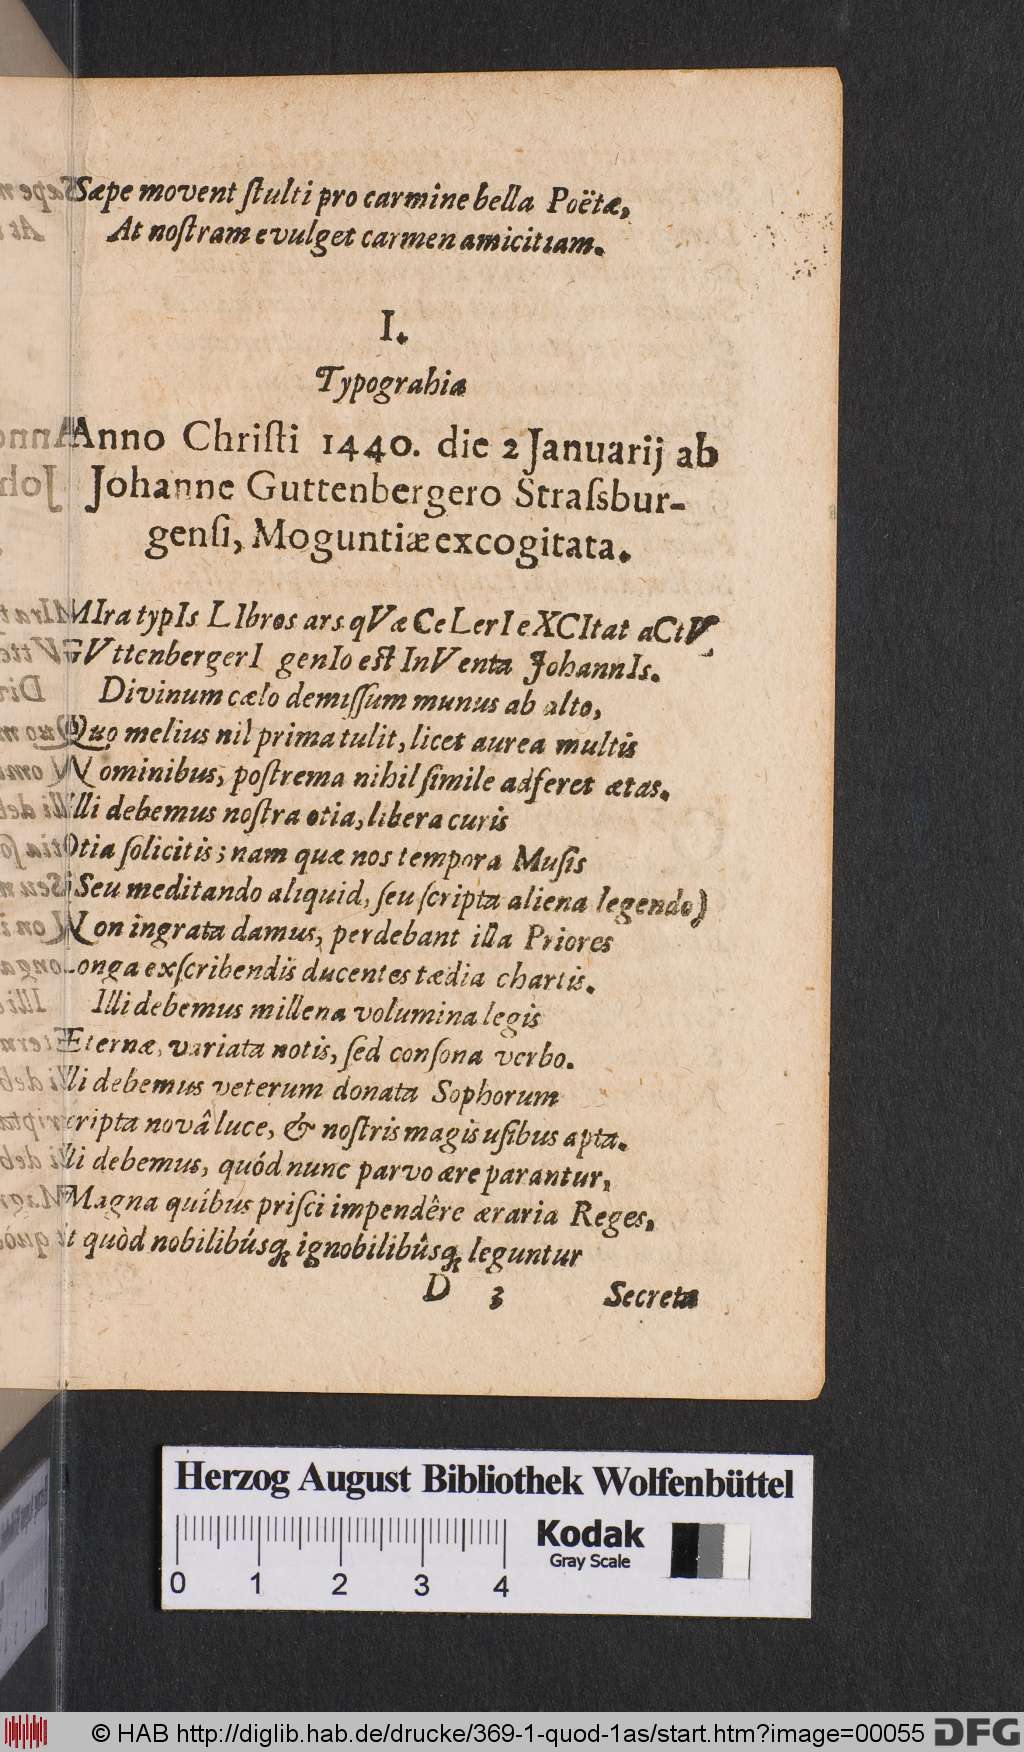 Sæpe movent ſtulti pro carmine bella Poëtæ,
At noſtram evulget carmen amicitiam.
I.
Typograhia
Anno Chriſti 1440. die 2 Januarij ab
Johanne Guttenbergero Straſsbur-
genſi, Moguntiæ excogitata.
MIra typIs LIbros ars qVæ CeLerI eXCItat aCtV
GVttenbergerI genIo eſt InVenta JohannIs.
Divinum cælo demiſſum munus ab alto,
Quo melius nil prima tulit, licet aurea multis
Nominibus, poſtrema nihil ſimile adferet ætas.
Illi debemus noſtra otia, libera curis
Otia ſolicitis; nam quæ nos tempora Muſis
(Seu meditando aliquid, ſeu ſcripta aliena legendo)
Non ingrata damus, perdebant illa Priores
Longa exſcribendis ducentes tædia chartis.
Illi debemus millena volumina legis
Æternæ, variata notis, ſed conſona verbo.
Illi debemus veterum donata Sophorum
Scripta novâ luce, & noſtris magis uſibus apta.
Illi debemus, quód nunc parvo ære parantur,
Magna quíbus priſci impendêre æraria Reges,
it quòd nobilibúsq; ignobilibûsq; leguntur
D 3 Secreta
Herzog August Bibliothek Wolfenbüttel
Kodak
Gray Scale
0 1 2 3 4
© HAB http://diglib.hab.de/drucke/369-1-quod-1as/start.htm?image=00055 DFG